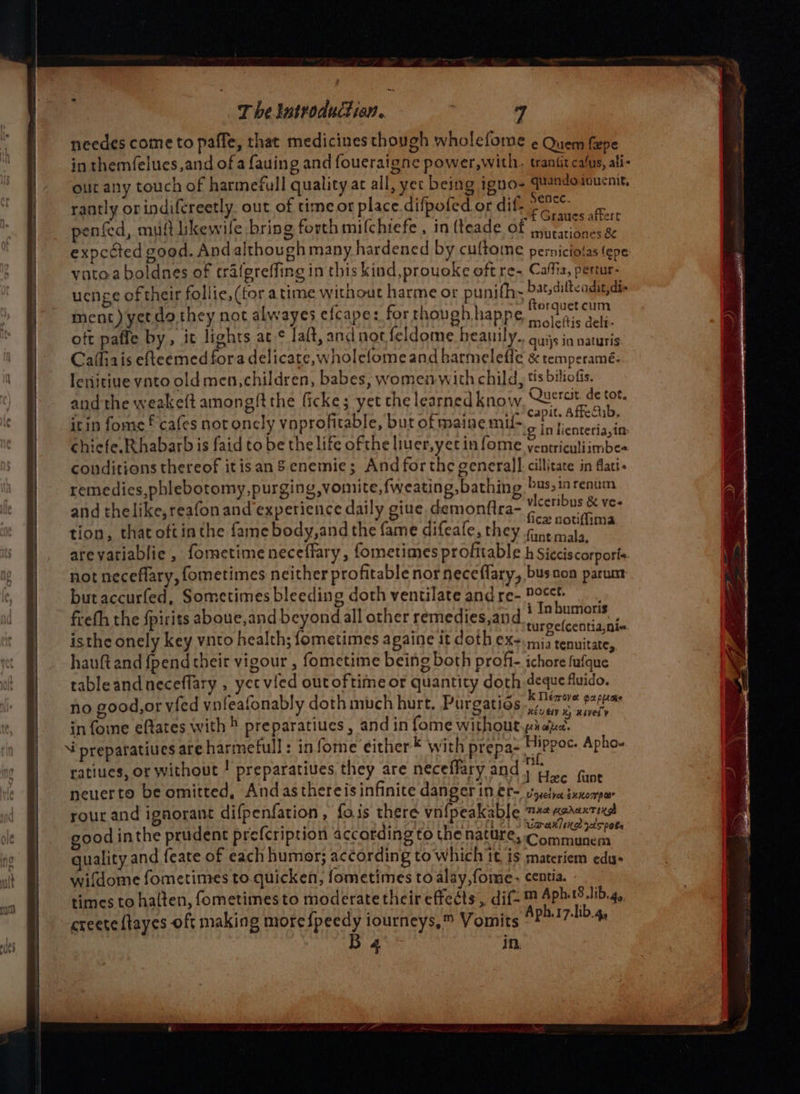 The Introduction. 7
needes come to passe, that medicines though wholesome
in themselues, and of a sauing and soueraigne power, with-
out any touch of harmefull quality at all, yet being igno-
rantly or indiscreetly, out of time or place disposed or dis-
pensed, must likewise bring forth mischiefe, in steade of
expected good. And although many hardened by custome
vnto a boldnes of trāsgressing in this kind, prouoke oft re-
uenge of their follie, (for a time without harme or punish-
ment) yet do they not alwayes escape: for though happe
oft passe by, it lights at e last, and not seldome heauily.
Cassia is esteemed for a delicate, wholesome and harmelesse
lenitiue vnto old men, children, babes, women with child,
and the weakest amongst the sicke; yet the learned know
it in some f cases not onely vnprofitable, but of maine mis-
chiefe. Rhabarb is said to be the life of the liuer, yet in some
conditions thereof it is an g enemie; And for the generall
remedies, phlebotomy, purging, vomite, sweating, bathing
and the like, reason and experience daily giue demonstra-
tion, that oft in the same body, and the same disease, they
are variablie, sometime necessary, sometimes profitable h
not necessary, sometimes neither profitable nor necessary,
but accursed. Sometimes bleeding doth ventilate and re-
fresh the spirits aboue, and beyond all other remedies, and
is the onely key vnto health; sometimes againe it doth ex-
haust and spend their vigour, sometime being both profi-
table and necessary, yet vsed out of time or quantity doth
no good, or vsed vnseasonably doth much hurt. Purgatiōs
in some estates with h preparatiues, and in some without
i preparatiues are harmefull: in some either k with prepa-
ratiues, or without l preparatiues they are necessary and
neuer to be omitted. And as there is infinite danger in er-
rour and ignorant dispensation, so is there vnspeakable
good in the prudent prescription according to the nature,
quality and seate of each humor; according to which it is
wisdome sometimes to quicken, sometimes to alay, some-
times to hasten, sometimes to moderate their effects, dis-
creete stayes oft making more speedy iourneys, m Vomits
B 4 in
e Quem sæpe
transit casus, ali-
quando inuenit,
Senec.
f Graues affert
mutationes &
perniciosas sepe
Cassia, pertur-
bat, distendit, di-
storquet cum
molestis deli-
quijs in naturis
& temperamē-
tis biliosis.
Quercit. de tot.
capit. Affectib.
g in lienteria, in
ventriculi imbe-
cillitate in flati-
bus, in renum
vlceribus & ve-
sicæ notissima
sunt mala.
Siccis corpori-
bus non parum
nocet.
i In humoris
turgescentia, ni-
mia tenuitate,
ichore suſque
deque fluido.
Hippoc. Apho-
ris.
l Hæc sunt
Communem
materiem edu-
centia.
m Aph. 18. lib. 4.
Aph. 17. lib. 4.